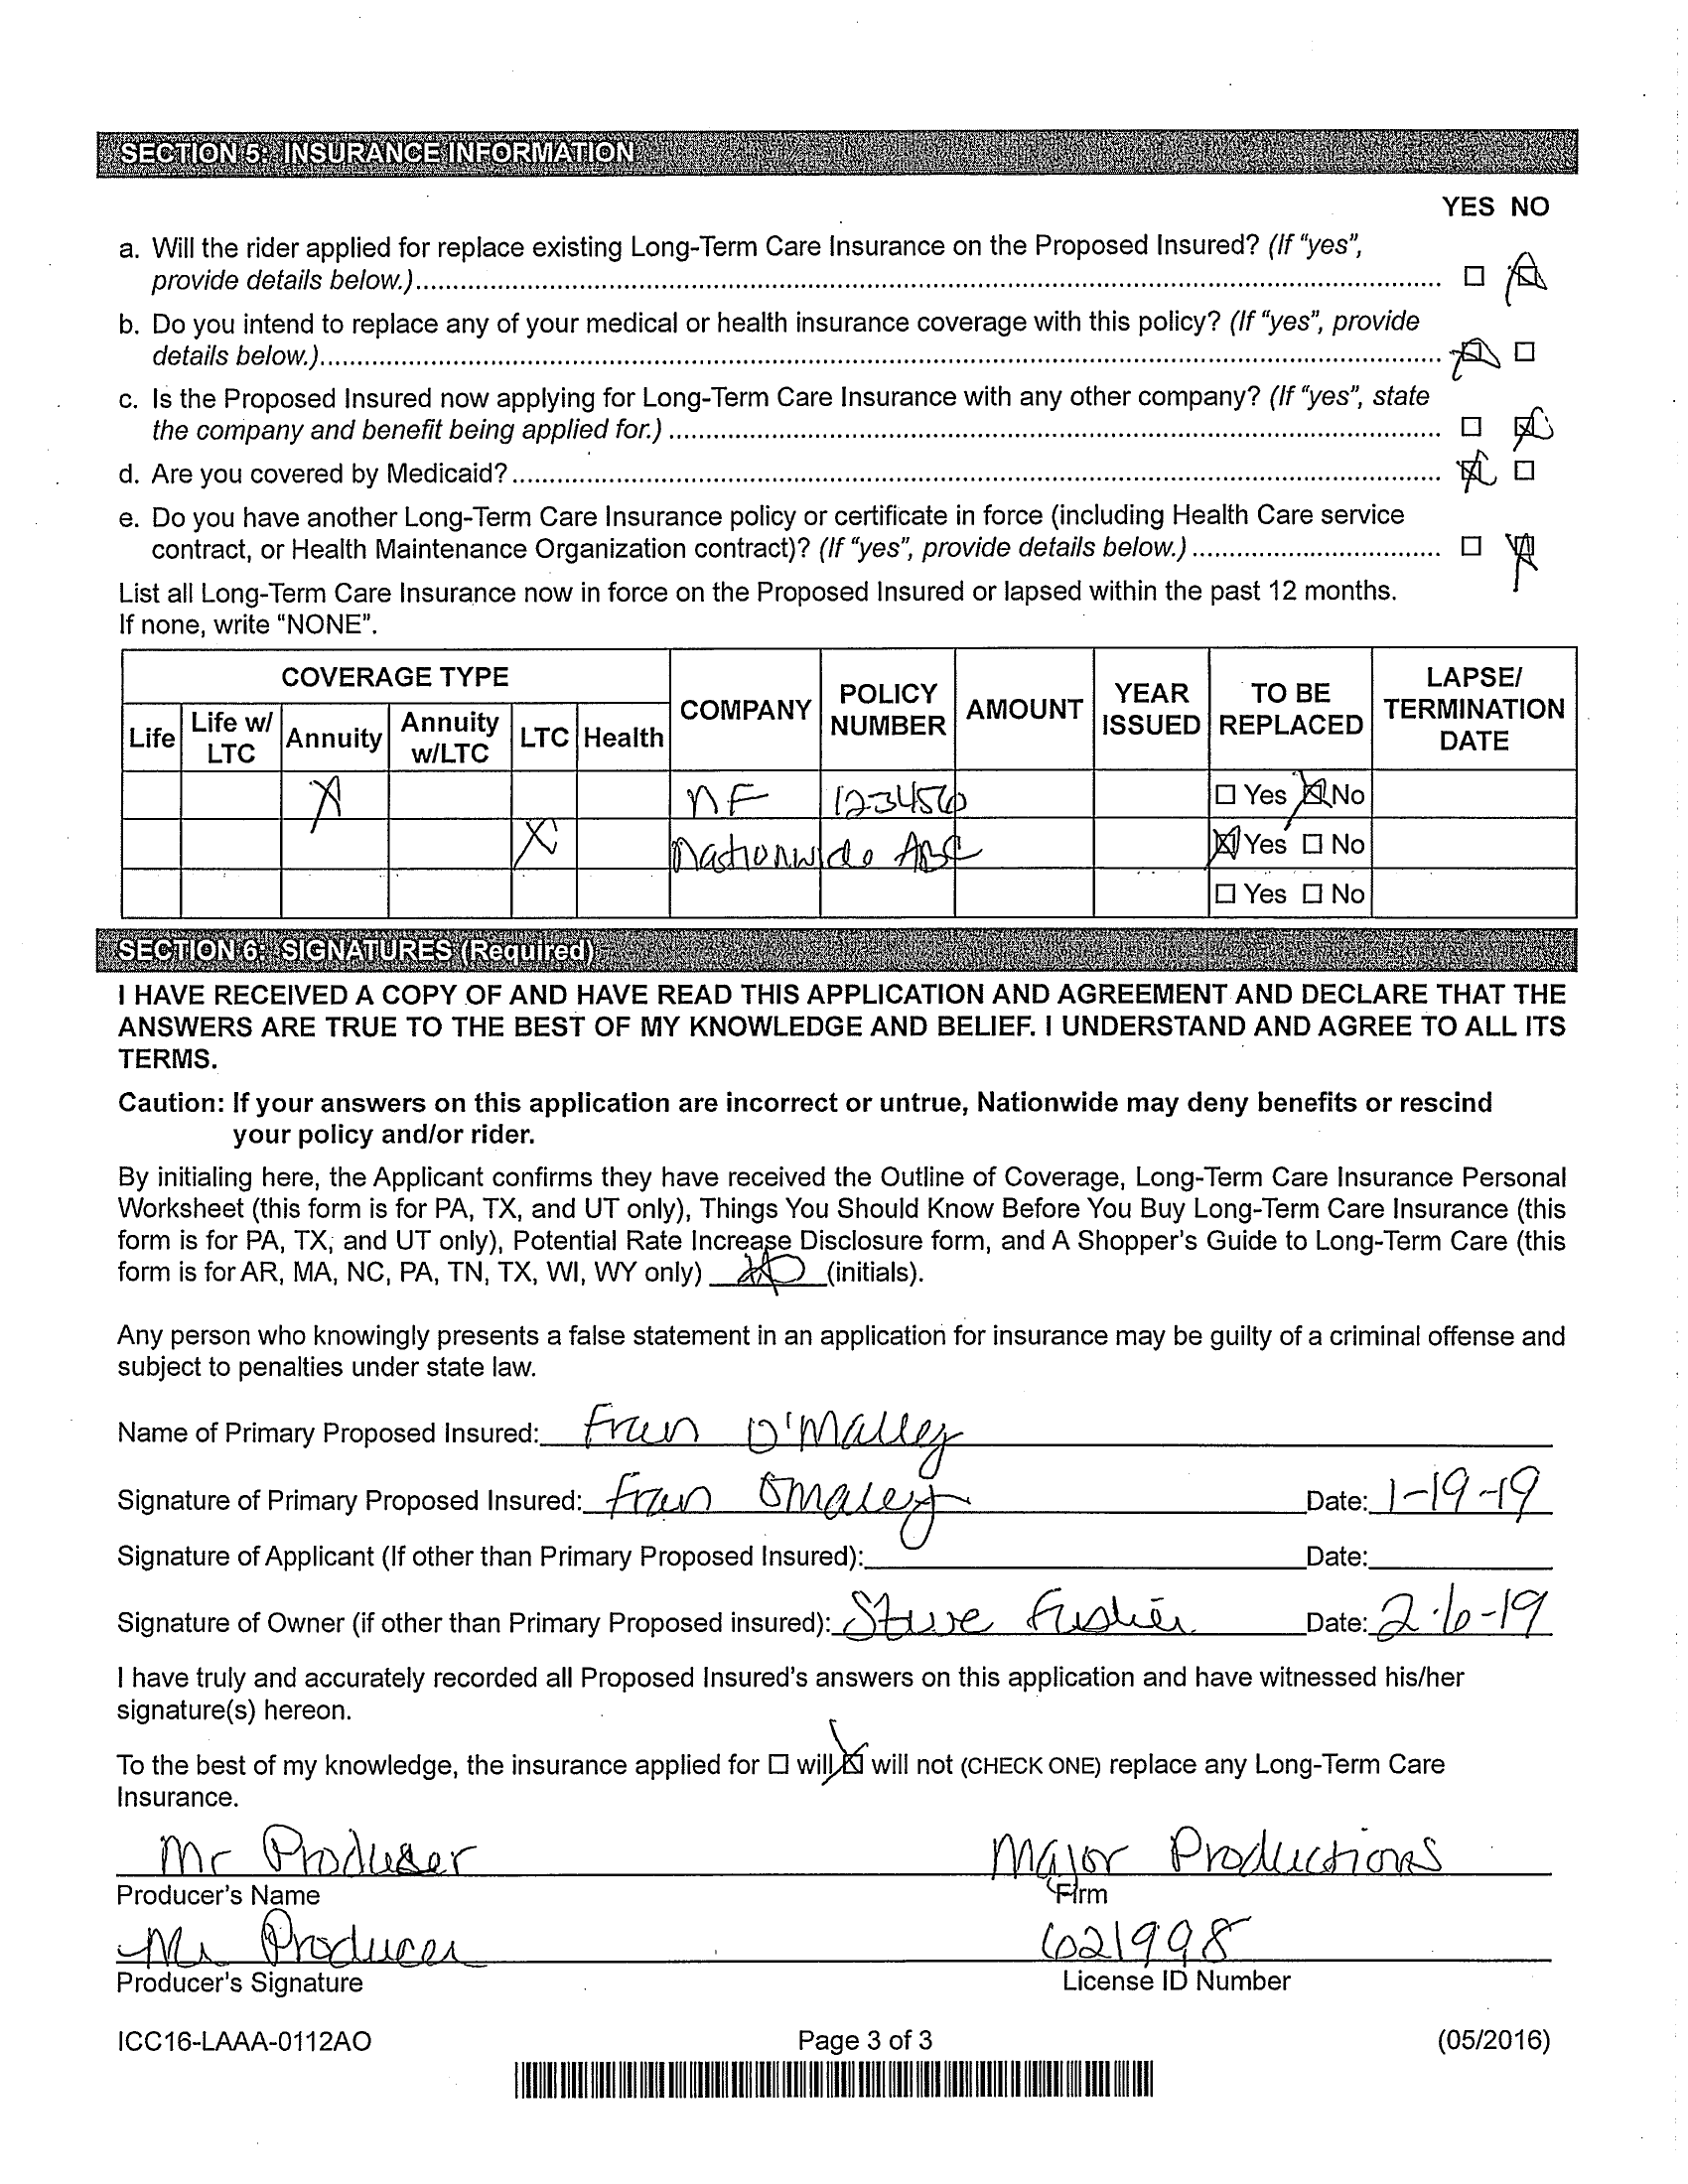 SECTION 5: INSURANCE INFORMATION
YES NO
a. Will the rider applied for replace existing Long-Term Care Insurance on the Proposed Insured? (If "yes",
provide details below.)
b. Do you intend to replace any of your medical or health insurance coverage with this policy? (If "yes", provide
details below.)
c. Is the Proposed Insured now applying for Long-Term Care Insurance with any other company? (If "yes", state
the company and benefit being applied for.)
d. Are you covered by Medicaid?
e. Do you have another Long-Term Care Insurance policy or certificate in force (including Health Care service
contract, or Health Maintenance Organization contract)? (If "yes", provide details below.)
List all Long-Term Care Insurance now in force on the Proposed Insured or lapsed within the past 12 months.
If none, write "NONE".
COVERAGE TYPE
Life
Life w/ LTC
Annuity
Annuity w/LTC
LTC
Health
COMPANY
POLICY NUMBER
AMOUNT
YEAR ISSUED
TO BE REPLACED
LAPSE/ TERMINATION DATE
X NF 123456 Yes No
X Nationwide ABC Yes No
Yes No
SECTION 6: SIGNATURES (Required)
I HAVE RECEIVED A COPY OF AND HAVE READ THIS APPLICATION AND AGREEMENT AND DECLARE THAT THE
ANSWERS ARE TRUE TO THE BEST OF MY KNOWLEDGE AND BELIEF. I UNDERSTAND AND AGREE TO ALL ITS
TERMS.
Caution: If your answers on this application are incorrect or untrue, Nationwide may deny benefits or rescind
your policy and/or rider.
By initialing here, the Applicant confirms they have received the Outline of Coverage, Long-Term Care Insurance Personal
Worksheet (this form is for PA, TX, and UT only), Things You Should Know Before You Buy Long-Term Care Insurance (this
form is for PA, TX, and UT only), Potential Rate Increase Disclosure form, and A Shopper's Guide to Long-Term Care (this
form is for AR, MA, NC, PA, TN, TX, WI, WY only) (initials).
Any person who knowingly presents a false statement in an application for insurance may be guilty of a criminal offense and
subject to penalties under state law.
Name of Primary Proposed Insured: Fran O'Malley
Signature of Primary Proposed Insured: Fran Omaley Date: 1-19-19
Signature of Applicant (If other than Primary Proposed Insured): Date:
Signature of Owner (if other than Primary Proposed insured): Steve Date: 2-6-19
I have truly and accurately recorded all Proposed Insured's answers on this application and have witnessed his/her
signature(s) hereon.
To the best of my knowledge, the insurance applied for will will not (CHECK ONE) replace any Long-Term Care
Insurance.
Mr Produser Major Productions
Producer's Name Firm
Mr Producer 621998
Producer's Signature License ID Number
ICC16-LAAA-0112AO Page 3 of 3 (05/2016)